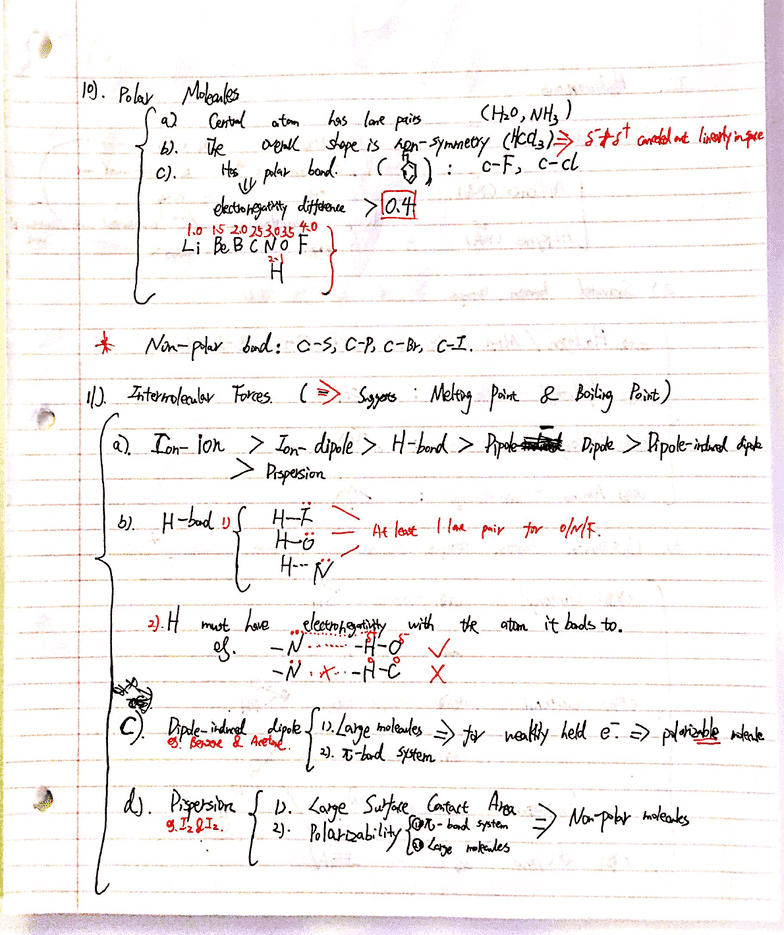 10). Polar Molecules
a). Central atom has lone pairs (H2O, NH3)
b). The overall shape is non-symmetry (HCCl3) ⇒ δ- & δ+ canceled out linearly in space
c). Has polar bond. ( ) : C-F, C-Cl
electronegativity difference > 0.4
1.0 1.5 2.0 2.5 3.0 3.5 4.0
Li Be B C N O F
2.1
H
* Non-polar bond: C-S, C-P, C-Br, C-I.
11). Intermolecular Forces. (⇒ Suggests : Melting Point & Boiling Point)
a). Ion-ion > Ion-dipole > H-bond > Dipole Dipole > Dipole-induced dipole
> Dispersion
b). H-bond 1) H-F
H-O At least 1 lone pair for O/N/F.
H--- N
2). H must have electronegativity with the atom it bonds to.
eg. -N ······ -H-O ✓
δ+ δ-
-N ··x·· -H-C X
0 0
C). Dipole-induced dipole 1). Large molecules ⇒ for weakly held e- ⇒ polarizable molecule
eg. Benzene & Acetone. 2). π-bond system
d). Dispersion 1). Large Surface Contact Area ⇒ Non-polar molecules
eg. I2 & I2. 2). Polarizability ① π-bond system
② Large molecules